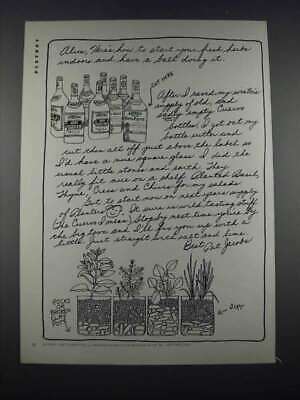 PLAYBOY
Alice, Here's how to start your fresh herbs
indoors and have a ball doing it.
CUT HERE
After I saved my winter's
supply of old, and
sadly empty, Cuervo
bottles, I got out my
bottle cutter and
cut them all off just above the label so
I'd have a nice square glass. I did the
usual little stones and earth. They
really fit nice on a shelf. Planted Basil,
Thyme, Cress and Chives for my salads.
Got to start now on next year's supply
of Planters. It sure is wild tasting stuff
(the Cuervo I mean). Stop by next time you're by
the big town and I'll fix you up with a
little. Just straight with salt and lime.
Best, Pat Jacobs
ROCKS
OR
BROKEN
POTS
DIRT